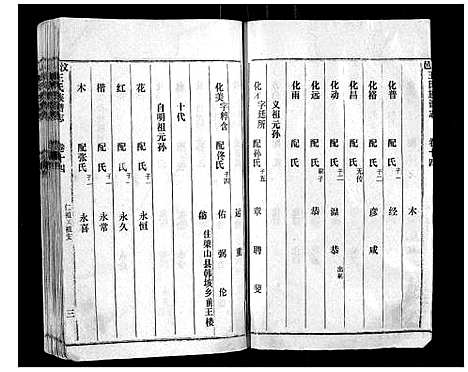 木
化普 配 氏 子二 经
化裕 配 氏 子二 彦 咸
化昌 配 氏 无传
化动 配 氏 子二 温 恭 出嗣
化远 配 氏 嗣子 恭
化南 配 氏
义祖元孙
化 字廷所 配孙氏 子五 章 聘 斐
运 重
化美 字粹含 配佟氏 子四 佑 弼 伦
住梁山县韩垓乡重王楼
十代
自明祖元孙
花 配 氏 子一 永恒
红 配 氏 子一 永久
楷 配 氏 子一 永常
木 配张氏 子二 永喜
汶王氏族谱志 卷十四
三